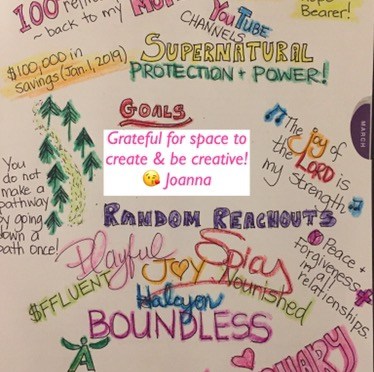 100
~ back to my
YouTube
CHANNELS
Bearer!
$100,000 in
savings (Jan.1,2019)
SUPERNATURAL
PROTECTION + POWER!
GOALS
MARCH
Grateful for space to
create & be creative!
😘 Joanna
The joy
of
the
LORD is
my strength
You
do not
make a
pathway
by going
down a
path once!
RANDOM REACHOUTS
Playful
Spicy
JOY
Peace +
Forgiveness
in all
relationships.
$FFLUENT
Halcyon
Nourished
BOUNDLESS